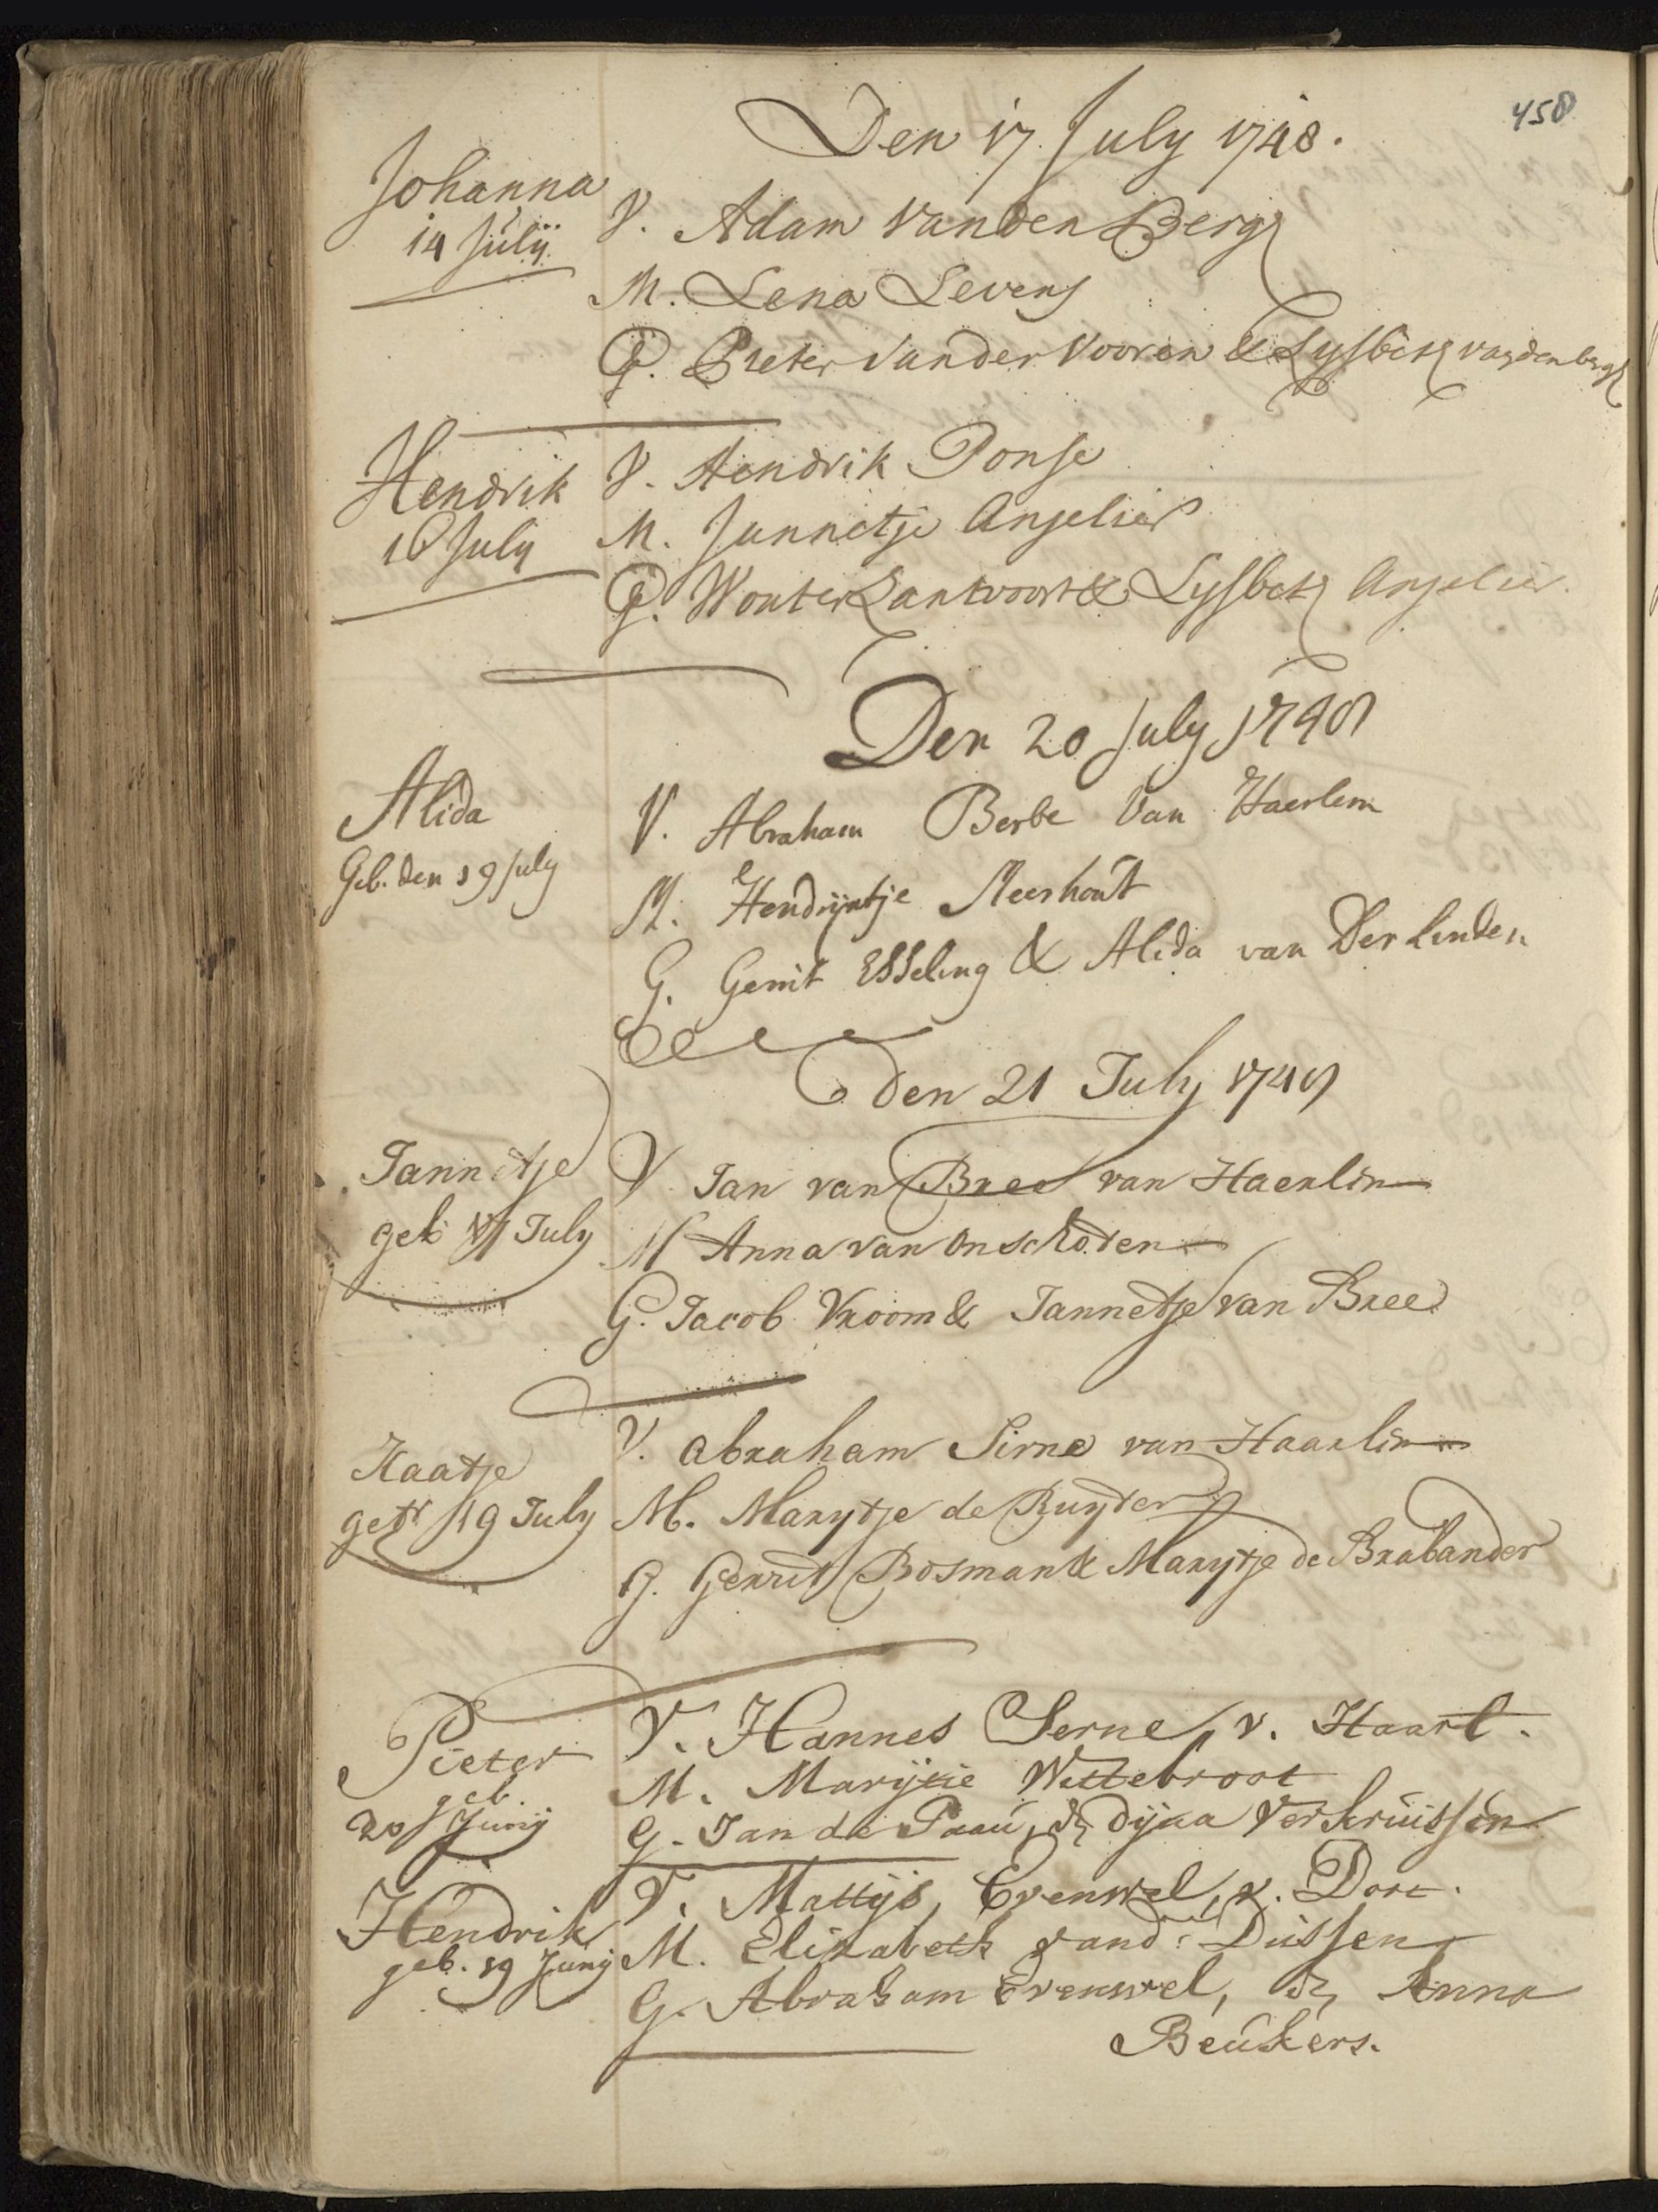 458
Den 17 July 1748.
Johanna
14 Julij.
V. Adam vanden Bergh
M. Lena Levens
G. Pieter vander Vooren & Lysbeth vandenbergh
Hendrik
16 July
V. Hendrik Ponse
M. Jannetje Anselier
G. Wouter Lantvoort & Lysbeth Anselier.
Den 20 July 1748
Alida
Geb. den 19 July
V. Abraham Berbe Van Haerlem
M. Hendrijntje Meerhout
G. Gerrit Esseling & Alida van Der Linden
den 21 July 1748
Jannetje
geb July
V Jan van Bree van Haerlem
M Anna van Onschoten
G. Jacob Vroom & Jannetje van Bree
Kaatje
geb 19 July
V. abraham Sirne van Haarlem
M. Marytje de Ruyter
G. Gerrit Bosman & Marytje de Brabander
Pieter
geb.
20 Junij
V. Hannes Serne, v. Haarl.
M. Marijtie Wittebroot
G. Jan de Paau, & Dijna Verkruissen
Hendrik
geb. 19 Junij
V. Mattijs, Evenwel, v. Dort.
M. Elizabeth vand: Dussen
G. Abraham Evenwel, & Anna
Beukers.